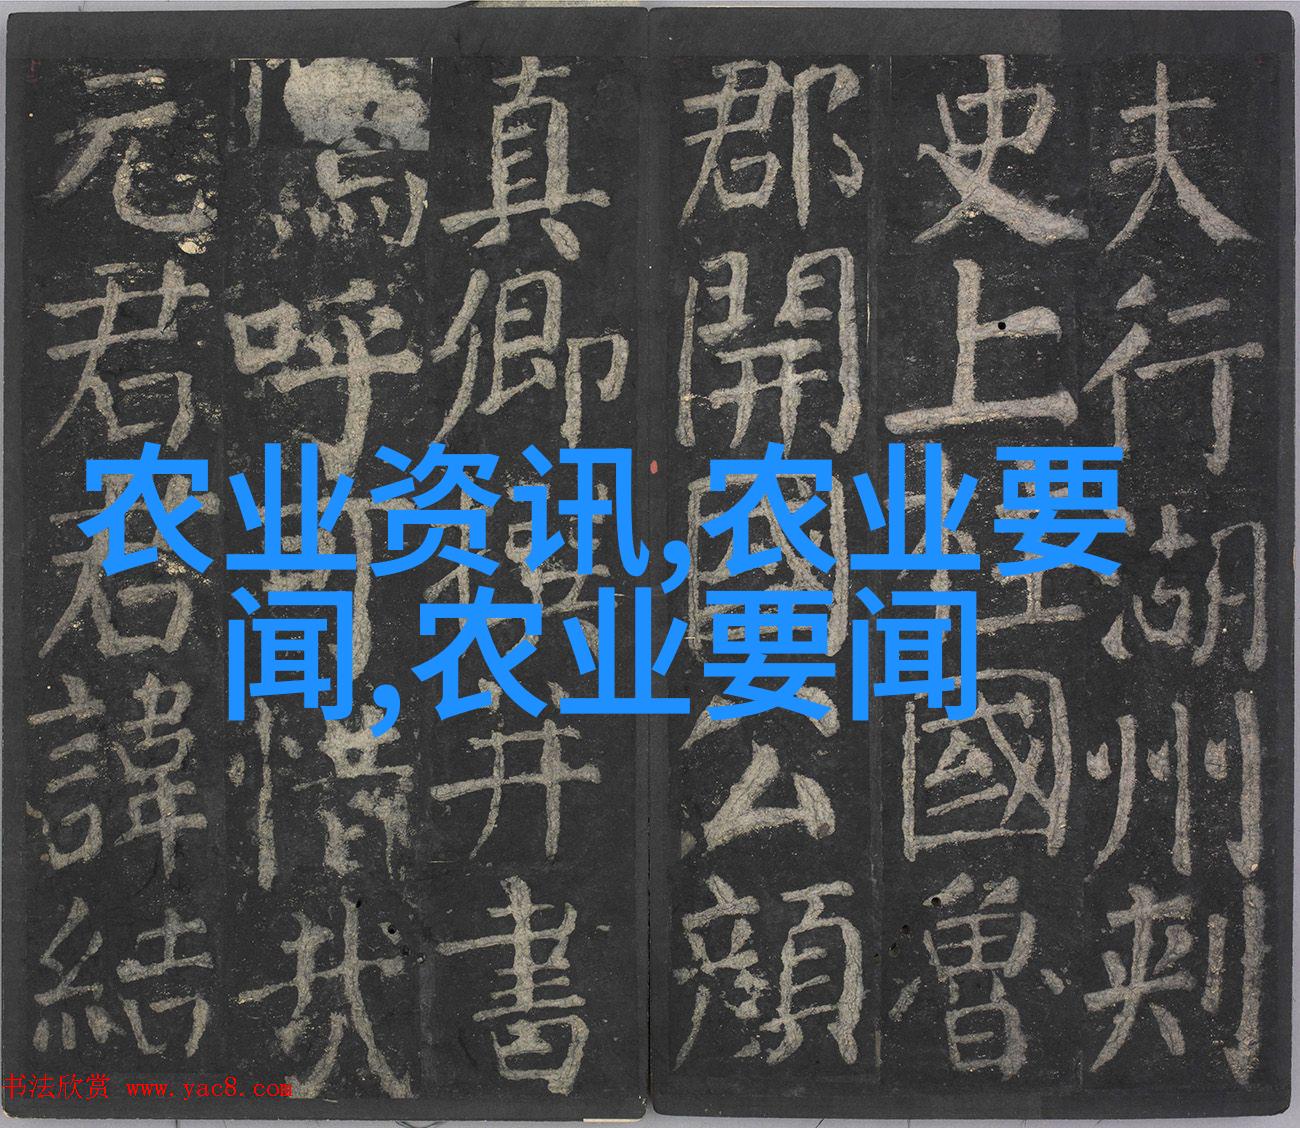 农业资讯,农业要
闻,农业要闻
夫行湖州刺
史上柱國魯
郡開國公顏
真卿撰并書
呼可惜哉
元君君諱結
书法欣赏 www.yac8.com